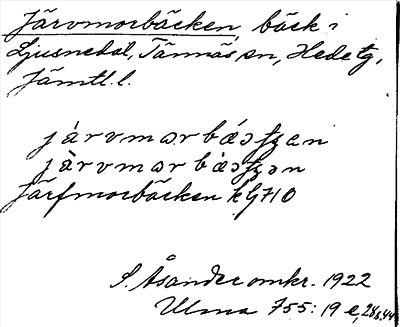 Järvmorbäcken, bäck i
Ljusnedal, Tännäs sn, Hede tg,
Jämtl. l.
järvmorbäcken
Järfmorbäcken k G710
S. Åsander omkr. 1922
Ulma 755: 19 e, 28 s. 44